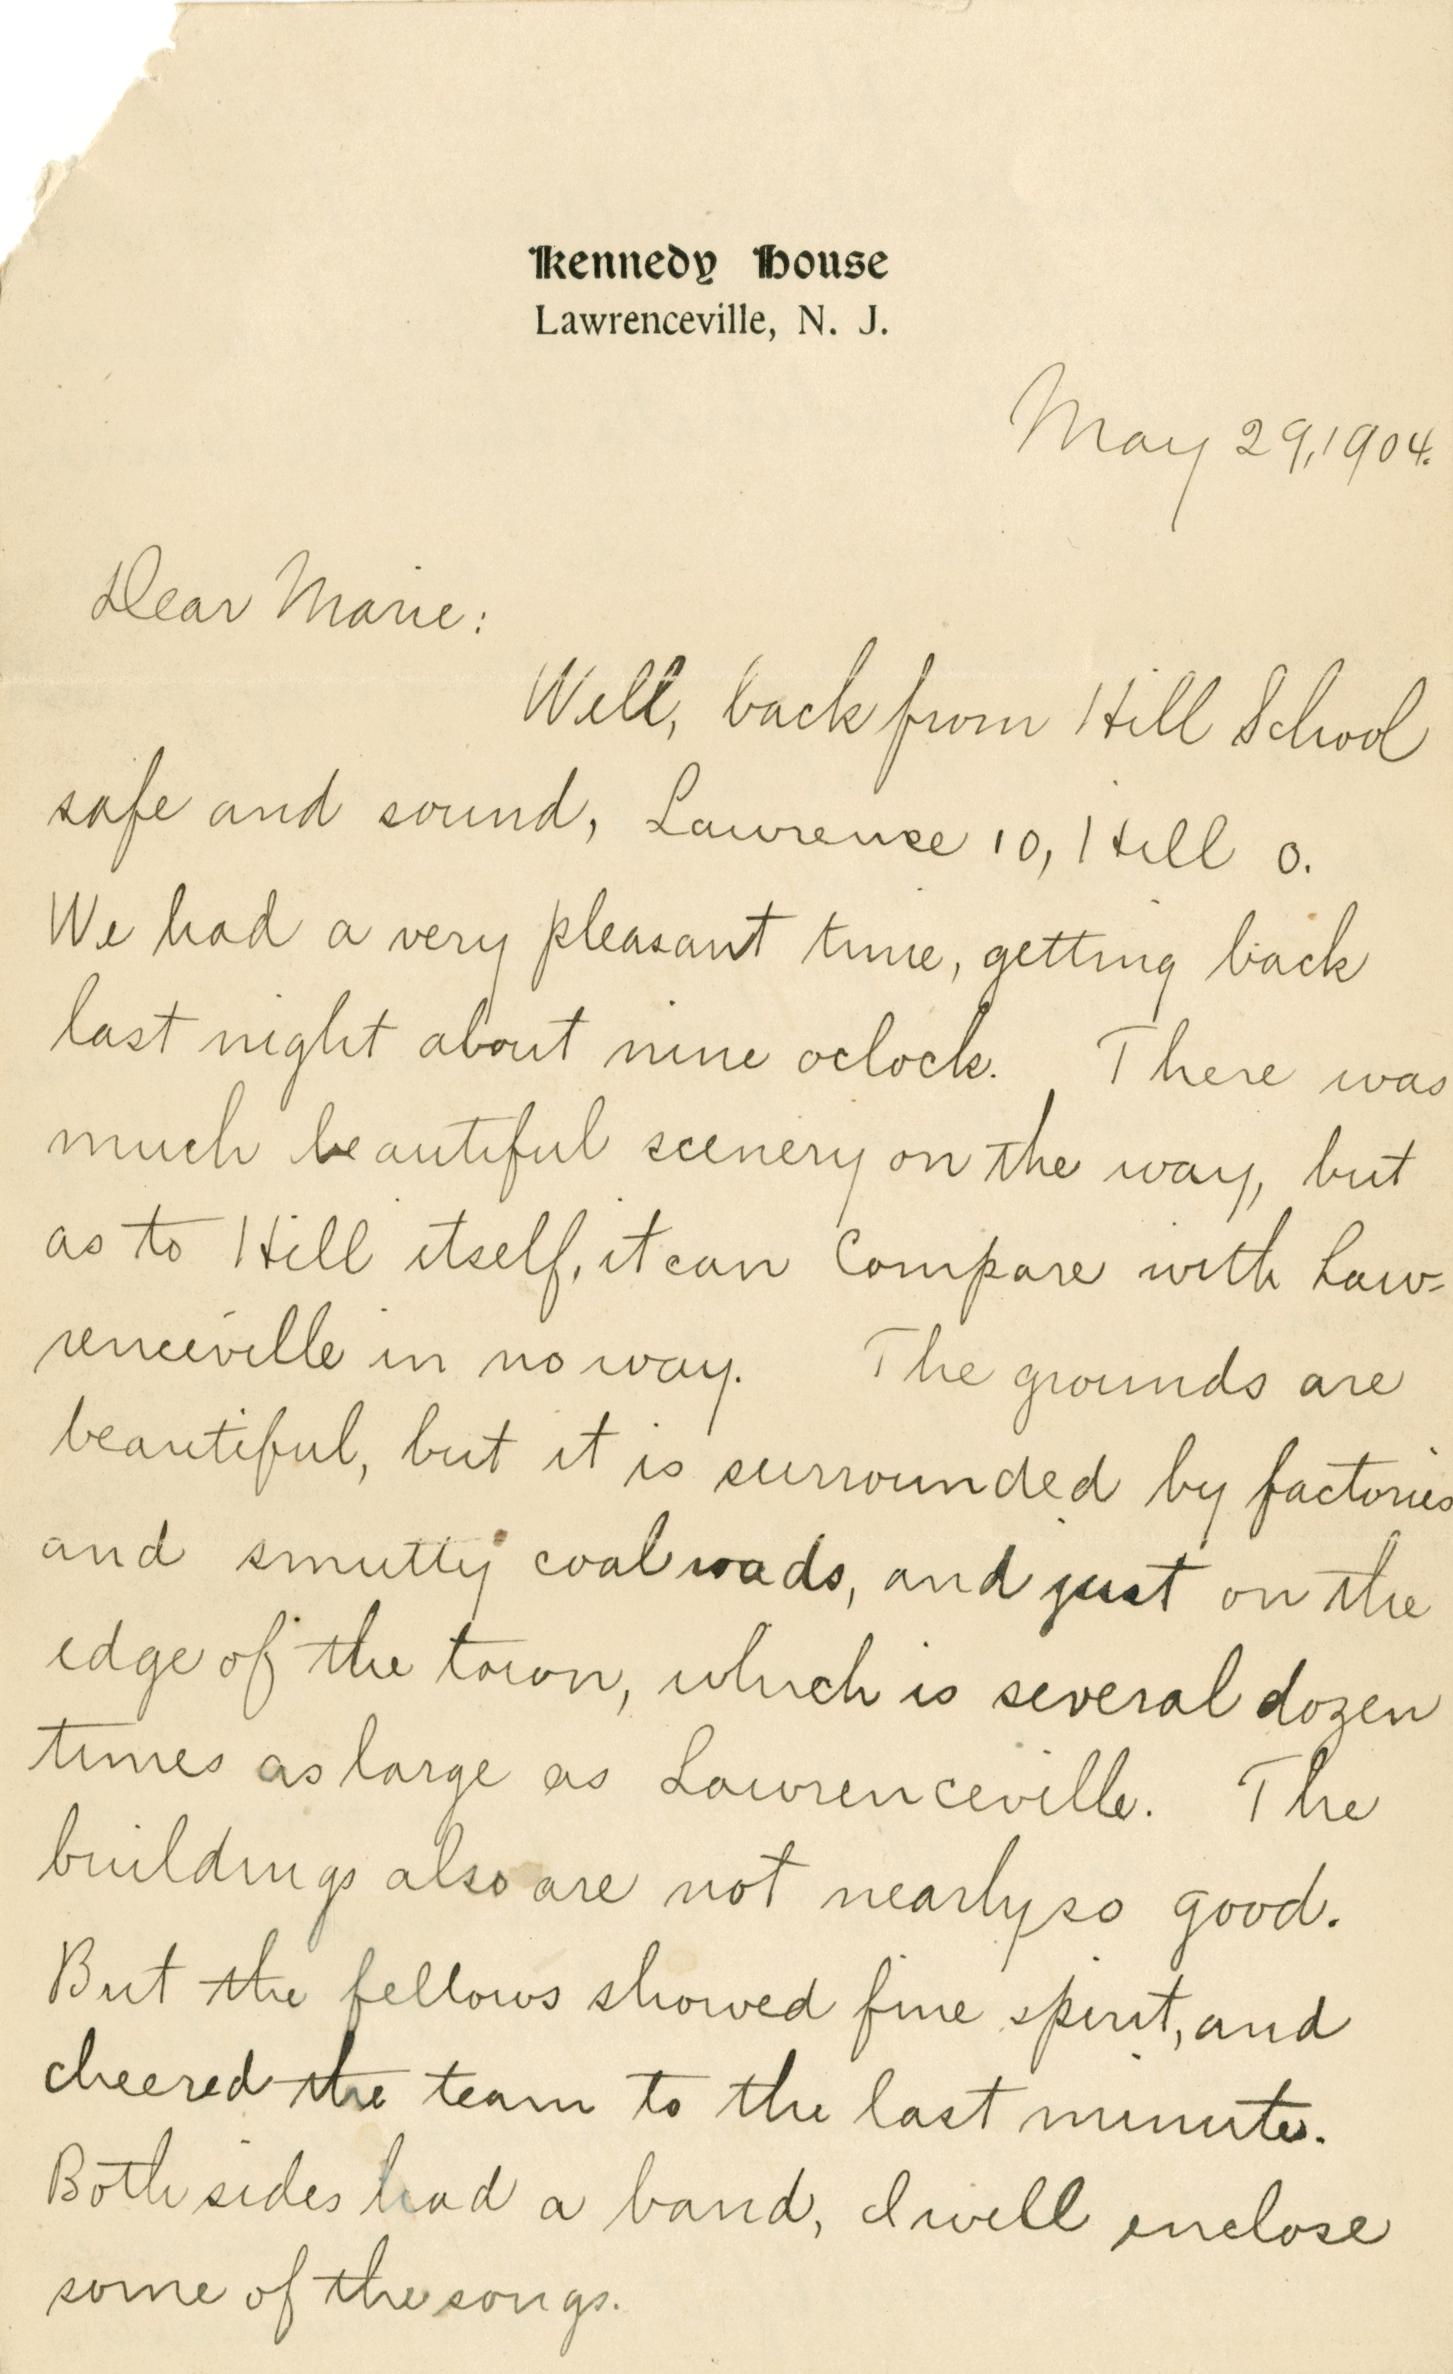 Kennedy House
Lawrenceville, N. J.
May 29, 1904.
Dear Marie:
Well, back from Hill School
safe and sound, Lawrence 10, Hill 0.
We had a very pleasant time, getting back
last night about nine oclock. There was
much beautiful scenery on the way, but
as to Hill itself, it can compare with Law=
renceville in no way. The grounds are
beautiful, but it is surrounded by factories
and smutty coal roads, and just on the
edge of the town, which is several dozen
times as large as Lawrenceville. The
buildings also are not nearly so good.
But the fellows showed fine spirit, and
cheered the team to the last minute.
Both sides had a band, I will enclose
some of the songs.